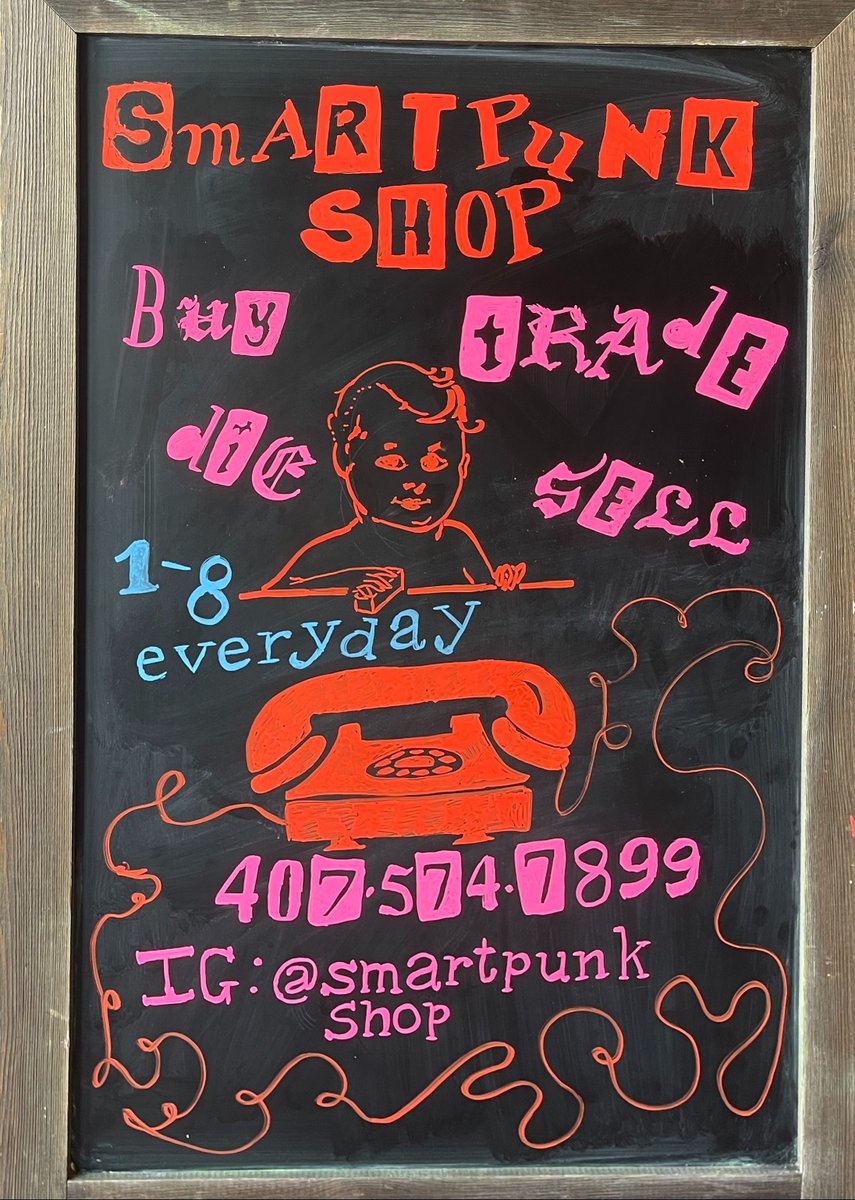 SmARTPuNK
SHOP
Buy tRAdE
diE SELL
1-8
everyday
407.574.7899
IG:@smartpunk
shop